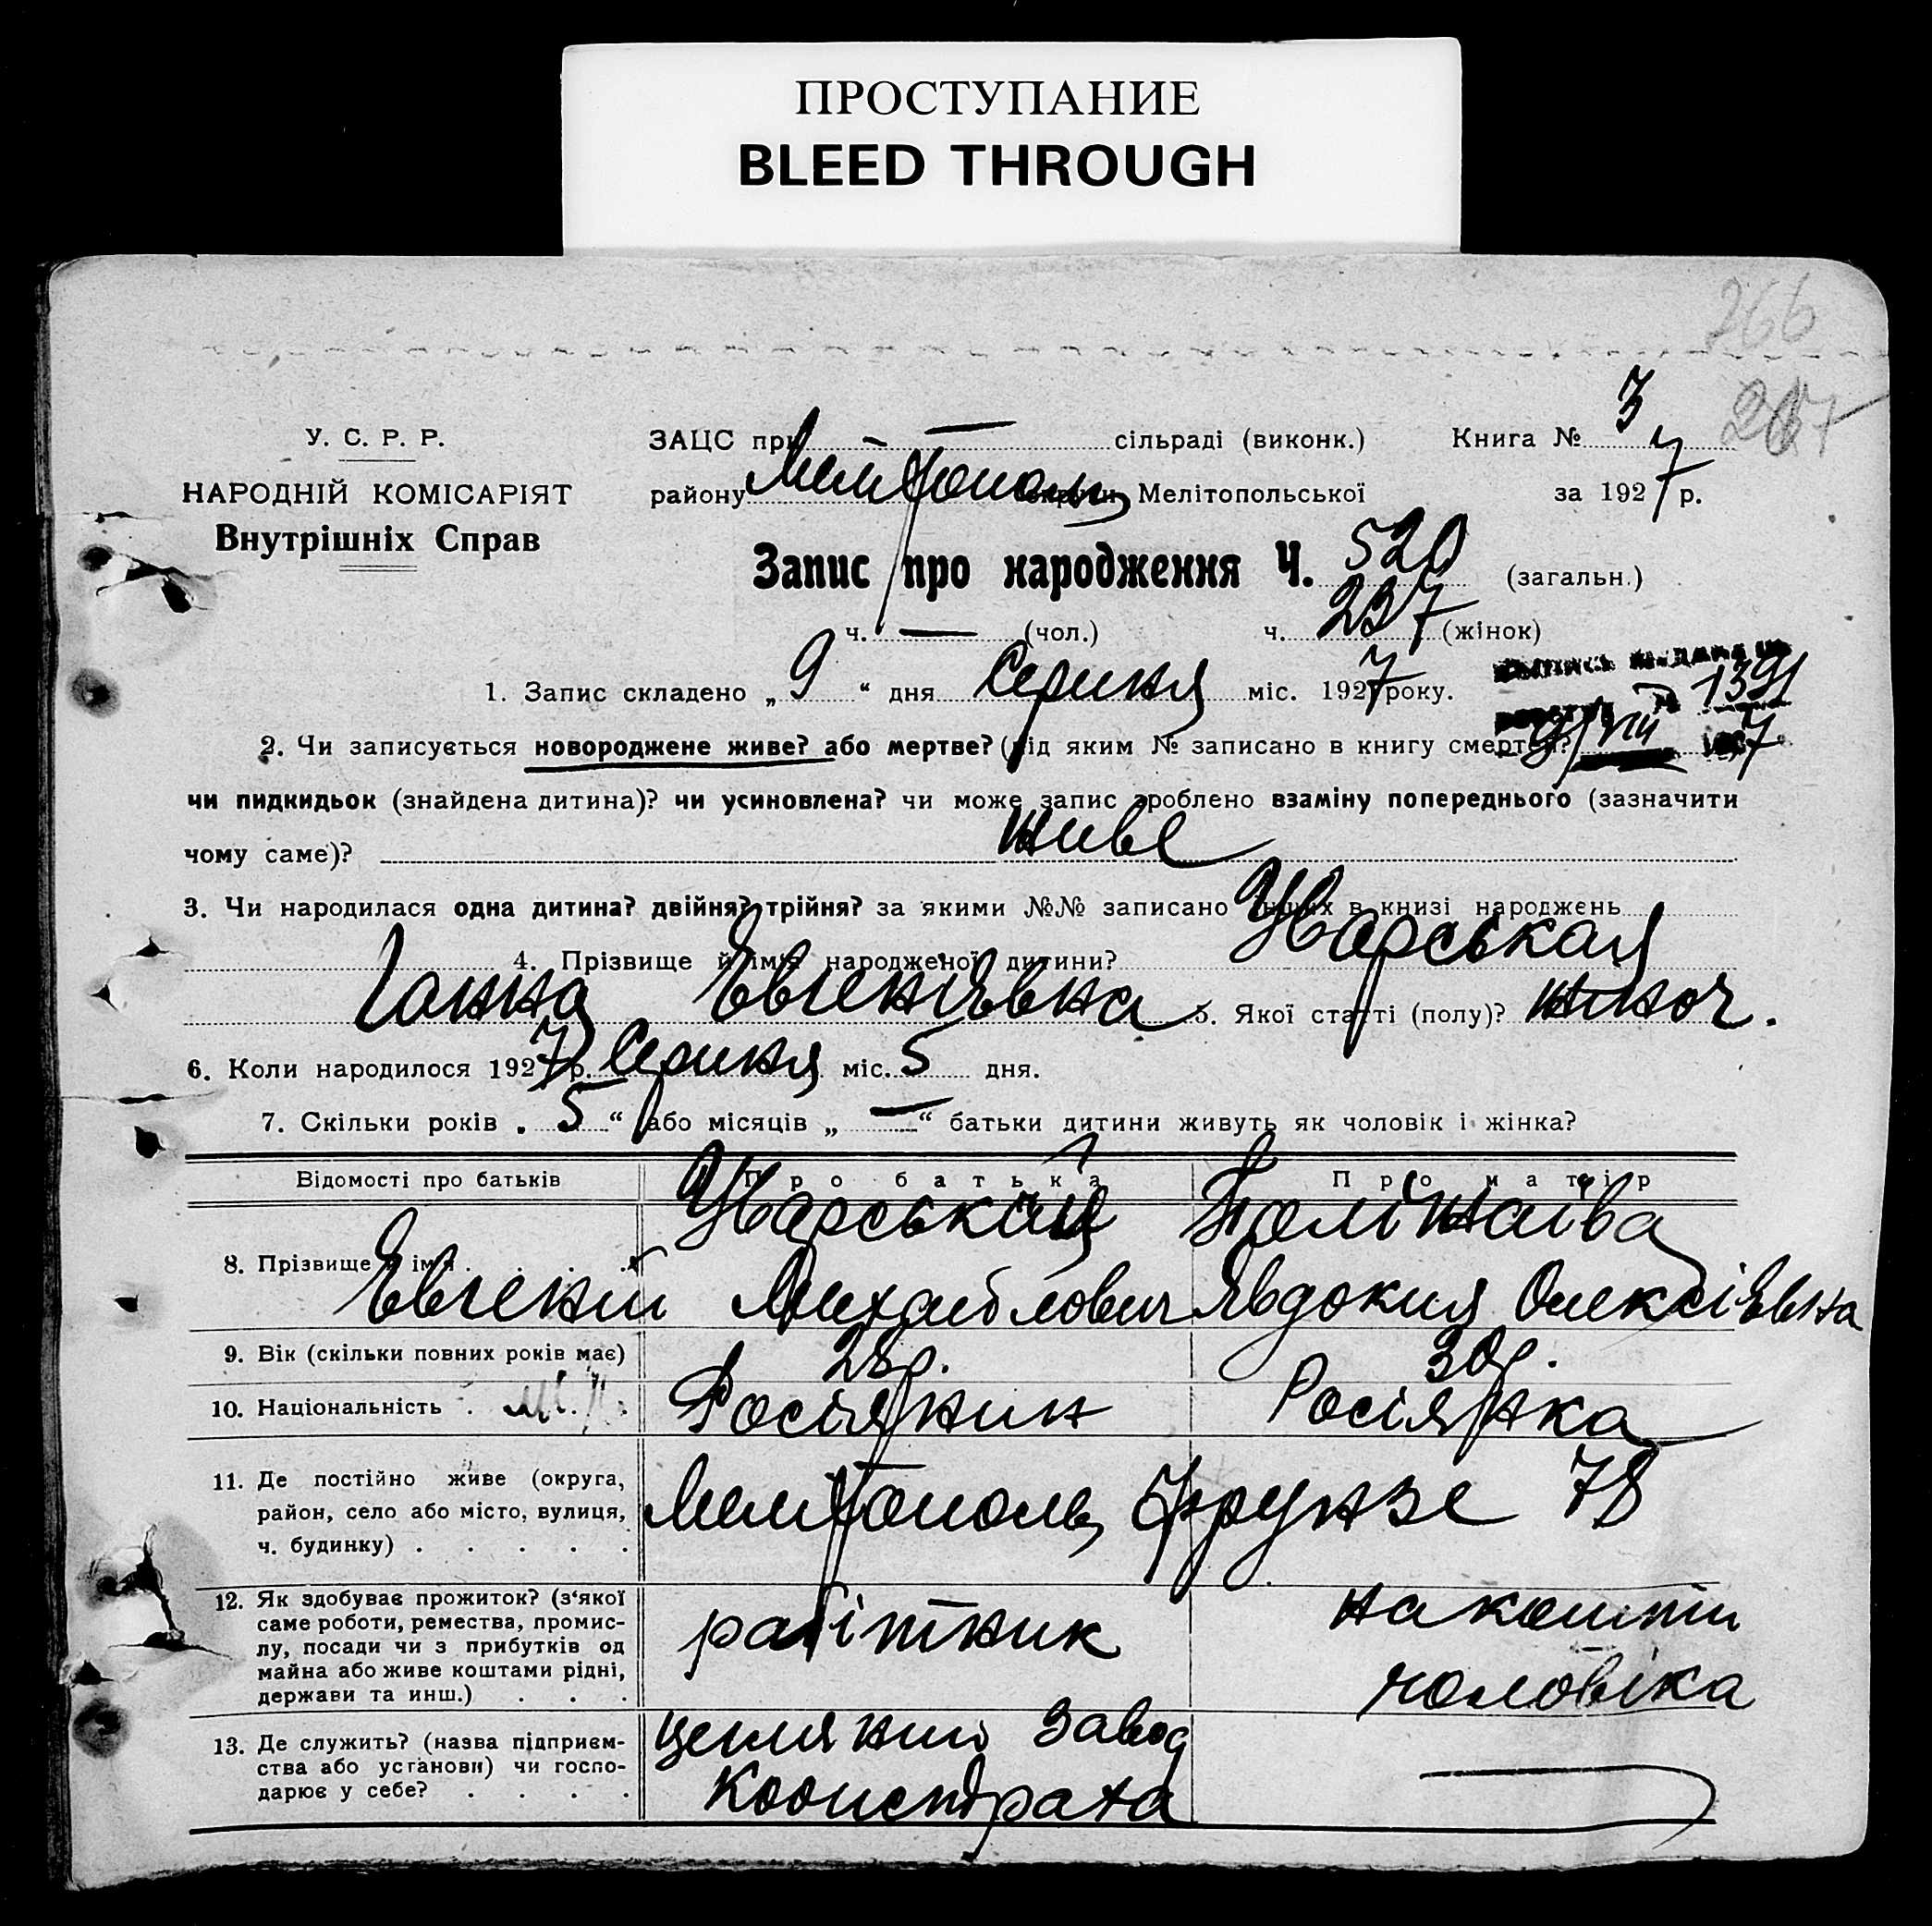 ПРОСТУПАНИЕ
BLEED THROUGH
266
267
У. С. Р. Р.
НАРОДНІЙ КОМІСАРІЯТ
Внутрішніх Справ
ЗАЦС при — сільраді (виконк.) Книга № 3
району Мелітополь округи Мелітопольської за 1927 р.
Запис про народження Ч. 520 (загальн.)
ч. — (чол.) ч. 237 (жінок)
1. Запис складено „ 9 “ дня Серпня міс. 1927 року.
1391
2. Чи записується новороджене живе? або мертве? (під яким № записано в книгу смертей?
чи пидкидьок (знайдена дитина)? чи усиновлена? чи може запис зроблено взаміну попереднього (зазначити
чому саме)? живе
3. Чи народилася одна дитина? двійня? трійня? за якими №№ записано інших в книзі народжень
4. Прізвище й ім'я народженої дитини?
Ганна Євгенієвна 5. Якої статті (полу)? жіноч.
6. Коли народилося 1927 р. Серпня міс. 5 дня.
7. Скільки років „ 5 “ або місяців „ — “ батьки дитини живуть як чоловік і жінка?
Відомості про батьків Про батька Про матір
8. Прізвище й ім'я
Євгений Михайлович Явдокия Олексієвна
9. Вік (скільки повних років має) 28р. 30р.
10. Національність Росіянин Росіянка
11. Де постійно живе (округа,
район, село або місто, вулиця,
ч. будинку) Мелітополь Фрунзе 78
12. Як здобуває прожиток? (з'якої
саме роботи, ремества, промис-
лу, посади чи з прибутків од
майна або живе коштами рідні,
держави та инш.) робітник на кошти
чоловіка
13. Де служить? (назва підприєм-
ства або установи) чи госпо-
дарює у себе? завод